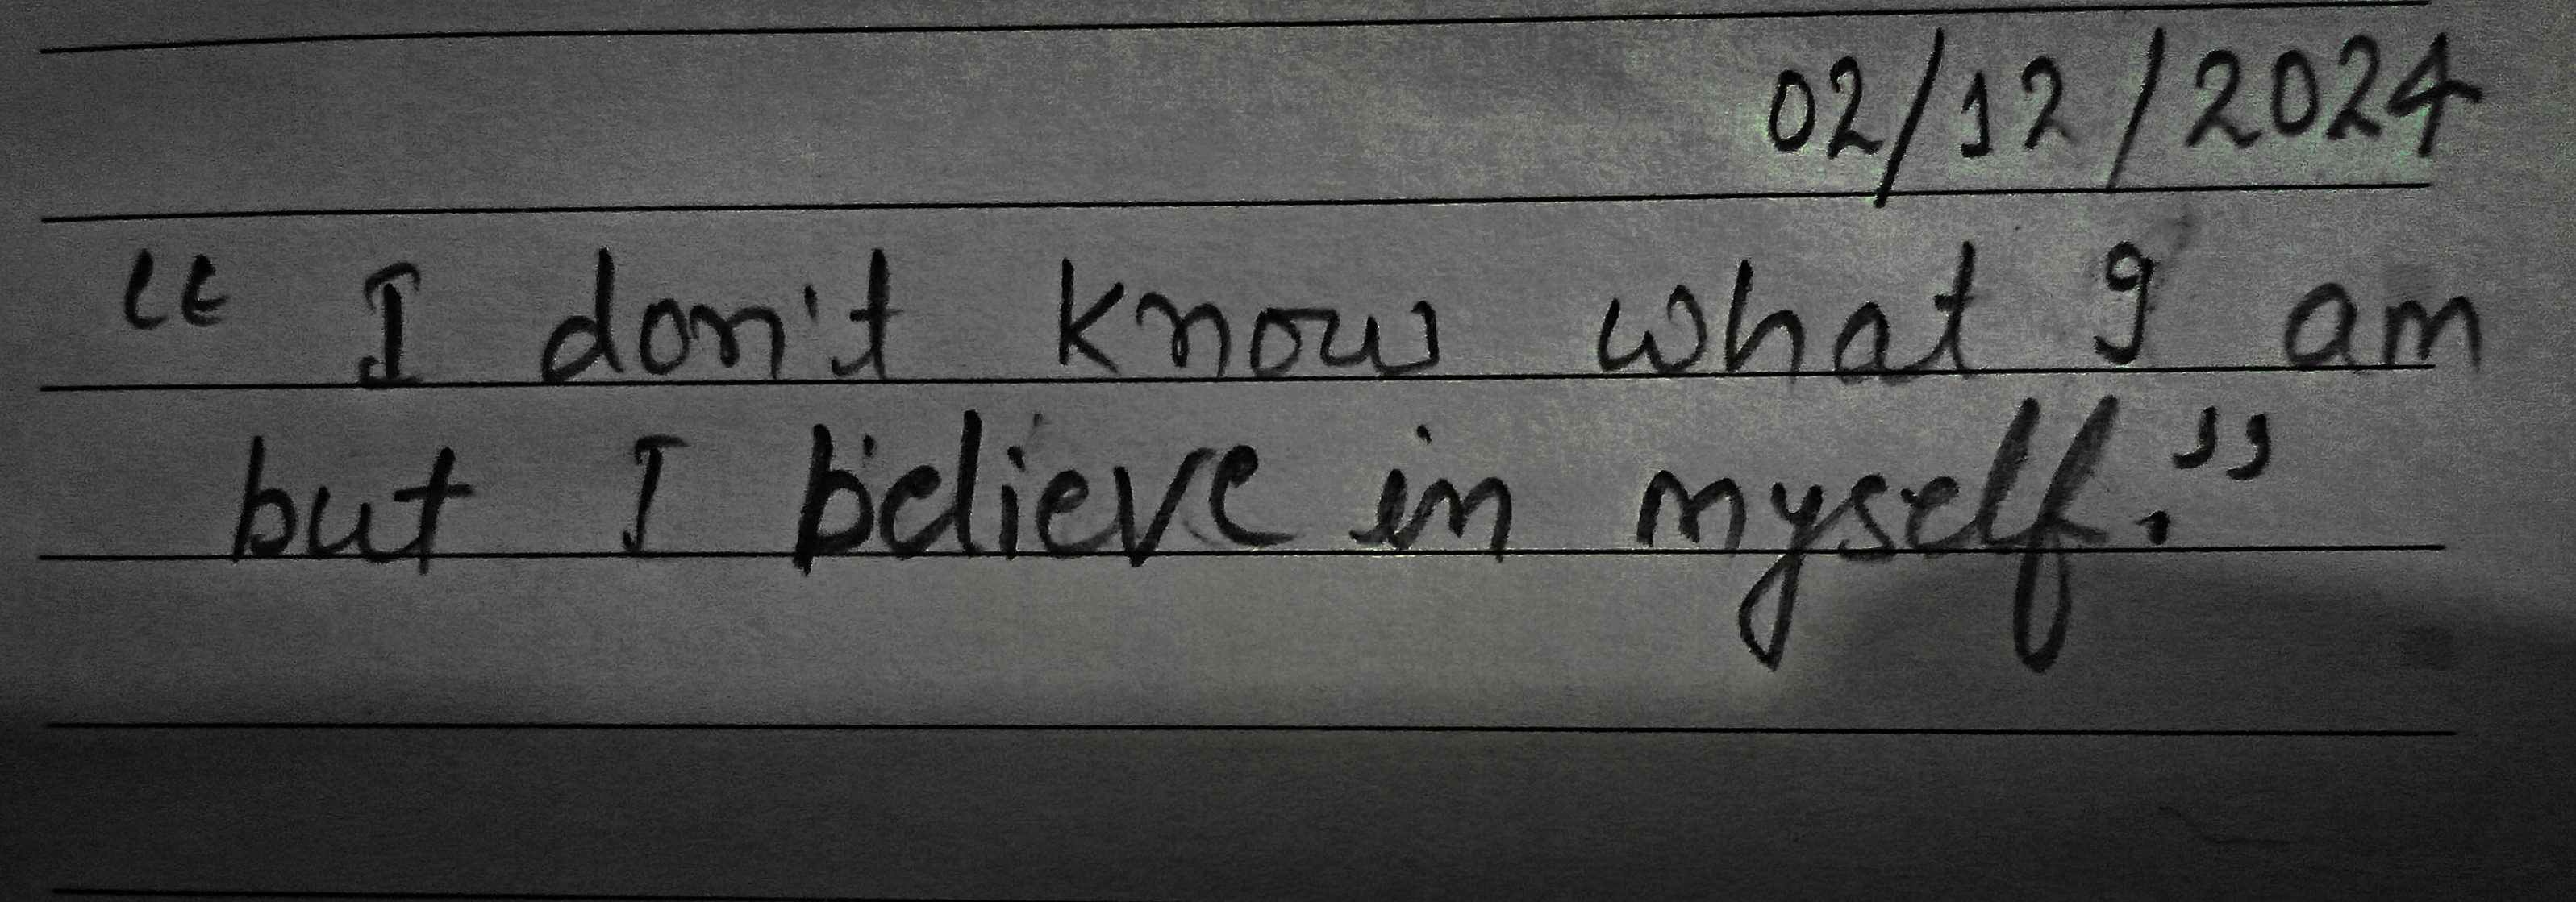 02/12/2024
“ I don't know what I am
but I believe in myself.”